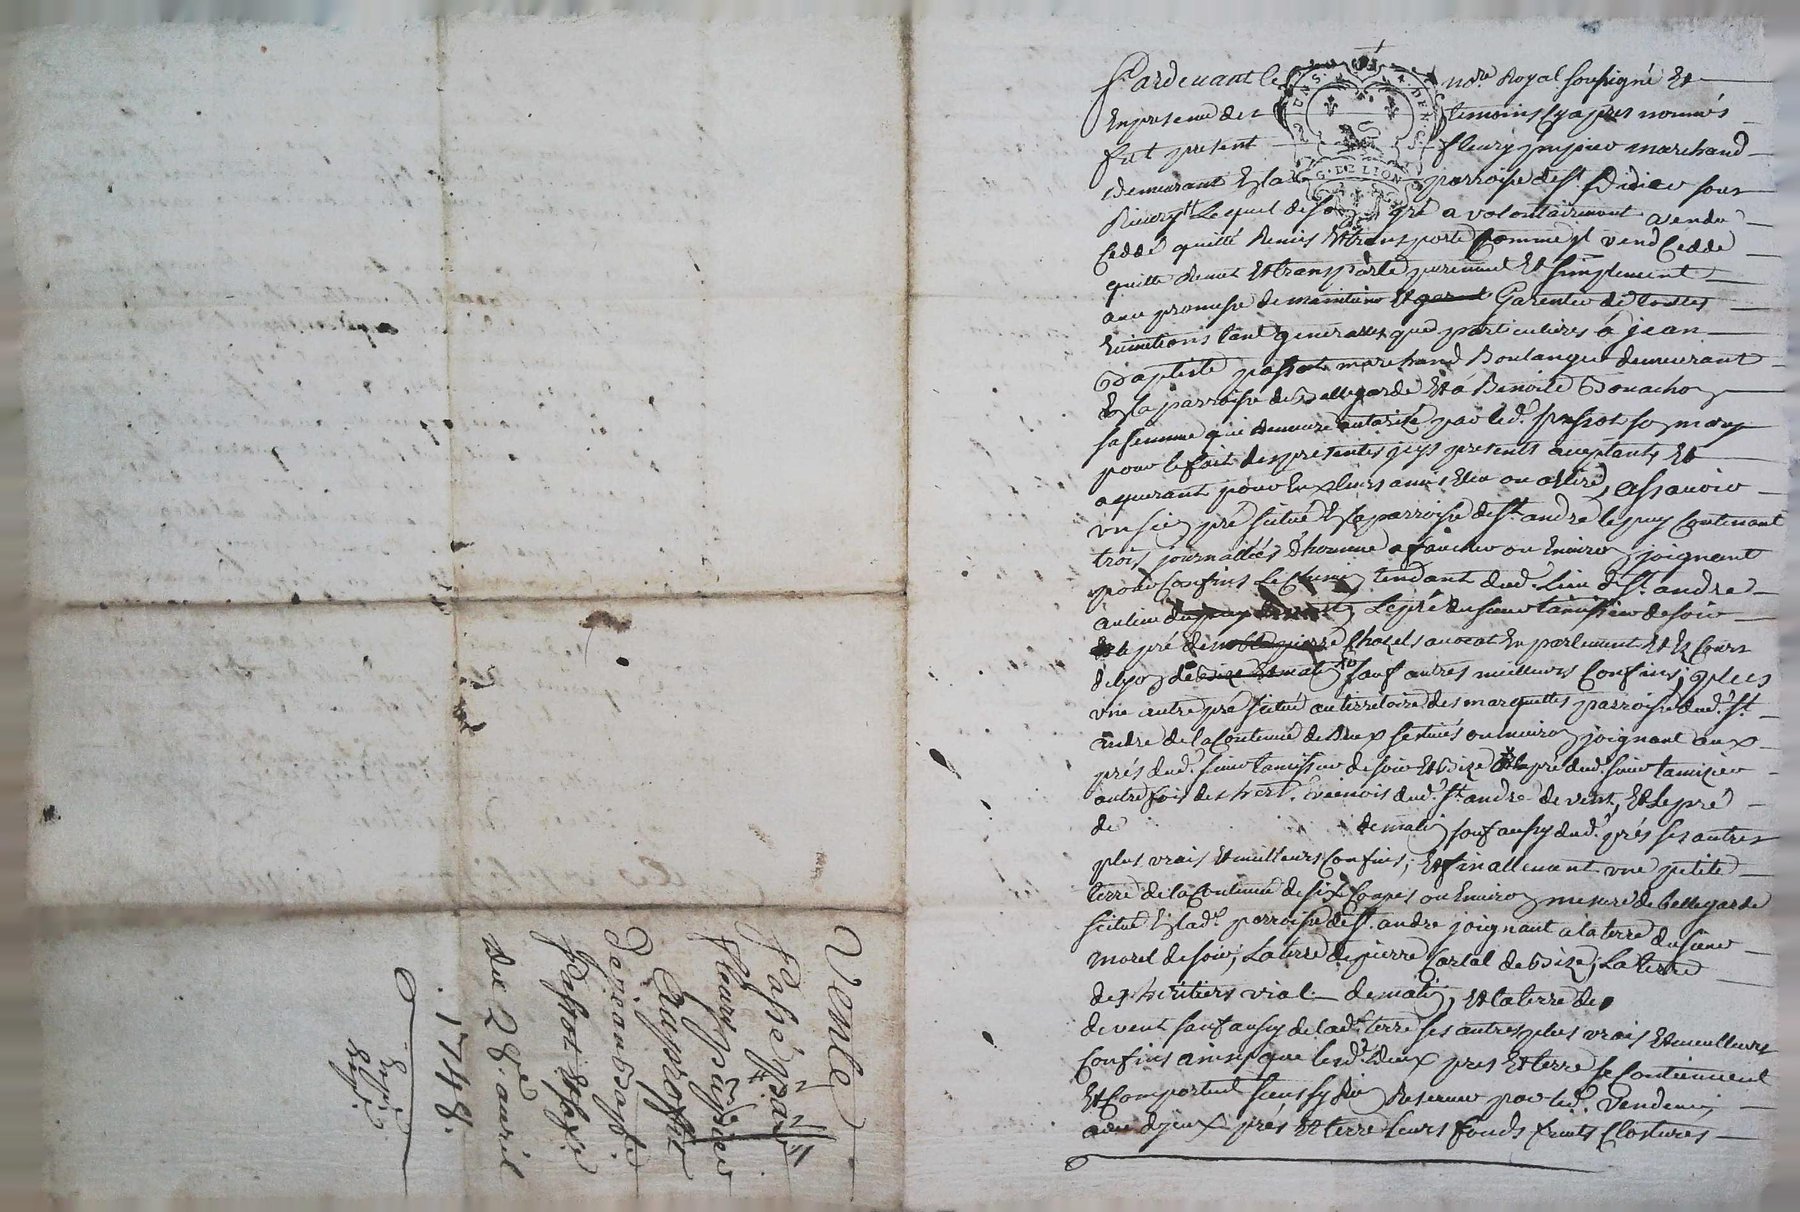 Pardevant le nore. Royal soussigné Et
En presence des temoins cy apres nommés
fut present fleury pupier marchand
demeurant En la parroisse de st. Didier sous
Riverie Lequel de son gré a volontairement vendu
Ceddé quitté Remis Et transporté Comme yl vend Cedde
quitte Remet Et transporte purement Et simplement
avec promesse de maintenir Et Garentir de toutes
Evictions tant generalles que particulieres à jean
Baptiste passot marchand Boulanger demeurant
En la parroisse de Bellegarde Et a Benoite Bouachon
sa femme que demeure autorisée par led. passot son mary
pour le fait des presentes ycys presents acceptants Et
aquerant pour Eux leurs amis Elu ou a Elire, assavoir
un sien pré scitué En la parroisse de st. andré le puy Contenant
trois journallées d'homme a faucher ou Environ joignant
pour Confins Le Chemin tendant dud. Lieu de st. andre
au lieu Le pré du sieur tamissier de soir
Le pré de Chazels avocat En parlement Et Es Cours
de Lyon de sauf autres meilleurs Confins; plus
une autre pré scitué au territoire des marquettes parroisse dud. st.
andre de la Contenue de Deux journées ou Environ joignant aux
prés dud. sieur tamissier de soir Et Bize Et le pré dud. sieur tamizier
autrefois des st. andre de vent, Et le pré
de de matin sauf aussy dud. prés ses autres
plus vrais Et meilleurs Confins; Et finallement une petite
terre de la Contenue de six Coupes ou Environ mesure de bellegarde
scitué En lad. parroisse de st. andre joignant a la terre du sieur
morel de soir; La terre de pierre Cartal de Bize; La terre
des héritiers vial de matin, Et la terre de
de vent sauf aussy de lad. terre ses autres plus vrais Et meilleurs
Confins ainsy que lesd. Deux prés Et terre se Contiennent
Et Comportent sans sy Rien Reserver par led. vendeur
avec dyceux prés Et terre leurs fonds fruits Clostures
Vente
Passé par
fleury pupier
Au proffit
De jean Baptiste
Passot & sa fe
du 28e. avril
1748.